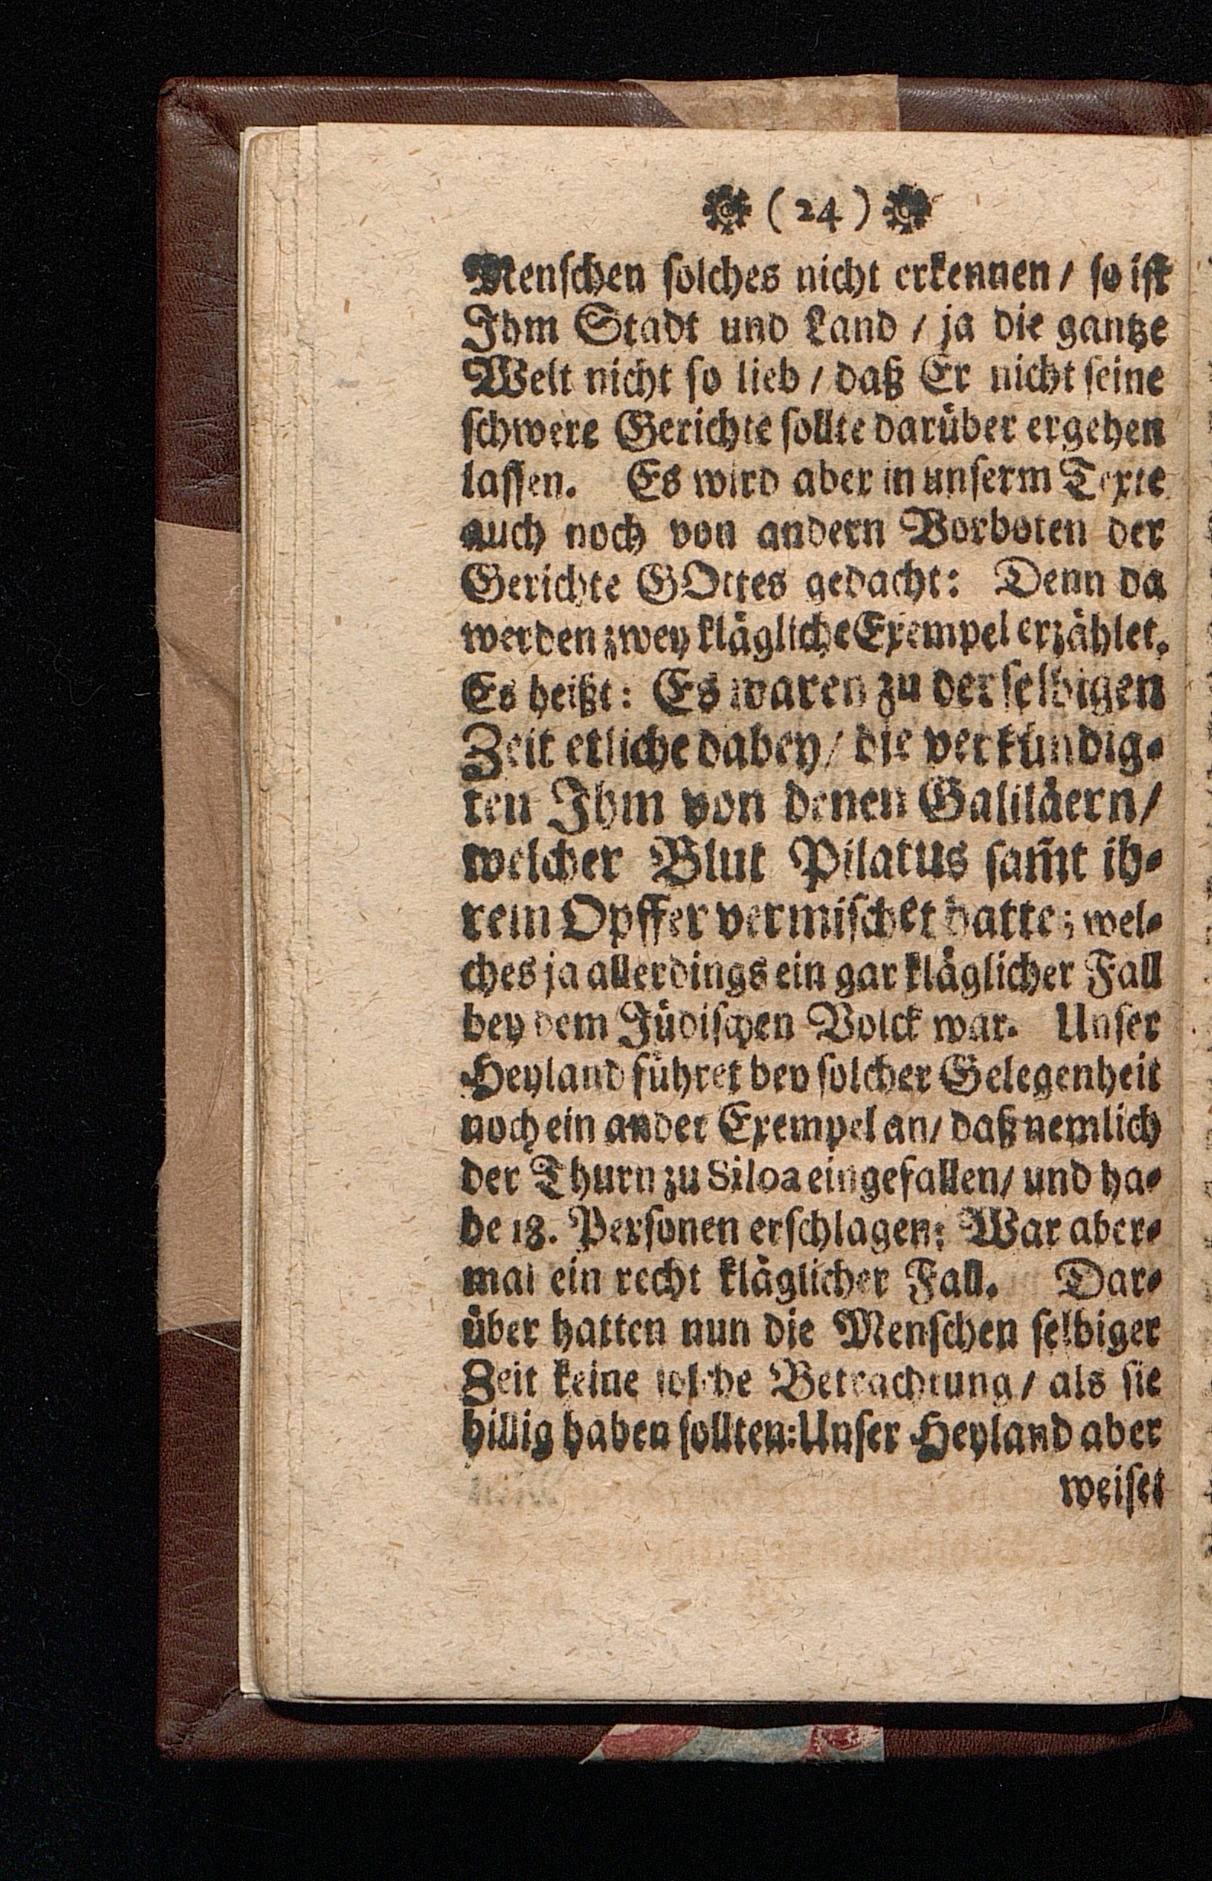 (24)
Menschen solches nicht erkennen / so ist
Ihm Stadt und Land / ja die gantze
Welt nicht so lieb / daß Er nicht seine
schwere Gerichte sollte darüber ergehen
lassen. Es wird aber in unserm Texte
auch noch von andern Vorboten der
Gerichte GOttes gedacht: Denn da
werden zwey klägliche Exempel erzählet.
Es heißt: Es waren zu derselbigen
Zeit etliche dabey / die verkündig-
ten Ihm von denen Galiläern /
welcher Blut Pilatus sam̃t ih-
rem Opffer vermischet hatte; wel-
ches ja allerdings ein gar kläglicher Fall
bey dem Jüdischen Volck war. Unser
Heyland führet bey solcher Gelegenheit
noch ein ander Exempel an / daß nemlich
der Thurn zu Siloa eingefallen / und ha-
be 18. Personen erschlagen: War aber-
mal ein recht kläglicher Fall. Dar-
über hatten nun die Menschen selbiger
Zeit keine solche Betrachtung / als sie
billig haben sollten: Unser Heyland aber
weiset